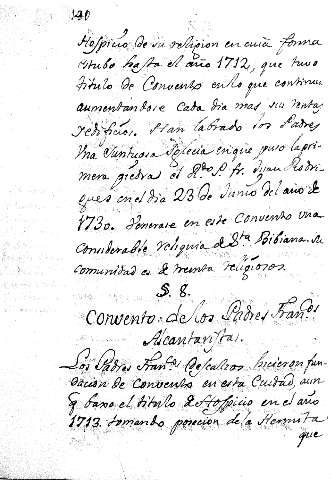 140
Hospicio de su religion en cuiâ forma
estubo hasta el año 1712, que tuvo
titulo de Convento en lo que continua
aumentandose cada dia mas su rentas
y edificios. Han labrado los Padres
Una Suntuosa Iglecia en que puso la pri-
mera piedra el Rdo P. fr. Juan Rodri-
gues en el dia 23 de Junio del año de
1730. Venerase en este Convento una
considerable reliquia de Sta Bibiana. su
comunidad es de treinta religiosos.
§. 8.
Convento de los Padres Francos
Alcantaristas.
Los Padres Francos descalsos hicieron fun-
dacion de convento en esta Ciudad, aun
q baxo el titulo de Hospicio en el año
1713. tomando posecion de la Hermita
que